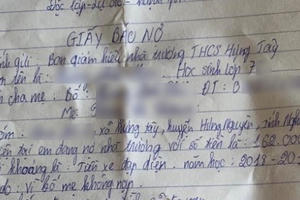 Độc lập - Tự do -
GIẤY BÁO NỢ
gửi: Ban giám hiệu nhà trường THCS Hưng Tây
tên là: Học sinh lớp 7
cha mẹ: Bố: ĐT: 0
Mẹ:
xã Hưng tây, huyện Hưng Nguyên, tỉnh Nghệ
trên tôi em đang nợ nhà trường với số tiền là: 162.000
khoảng là: Tiền xe đạp điện năm học: 2018-20
do: vì bố mẹ không nộp.